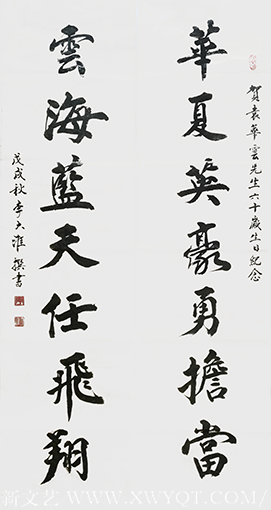 贺袁華雲先生六十歲生日紀念
華夏英豪勇擔當
雲海藍天任飛翔
戊戌秋李大淮撰書
新文艺 WWW.XWYQT.COM/